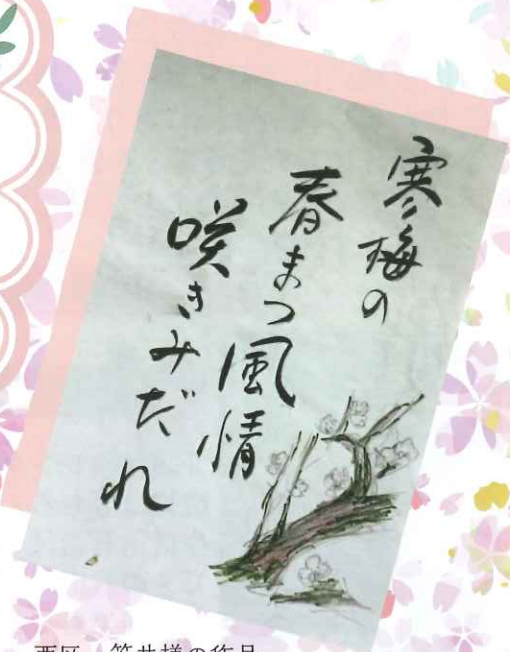 寒梅の
春まつ風情
咲きみだれ
西区 笹井様の作品